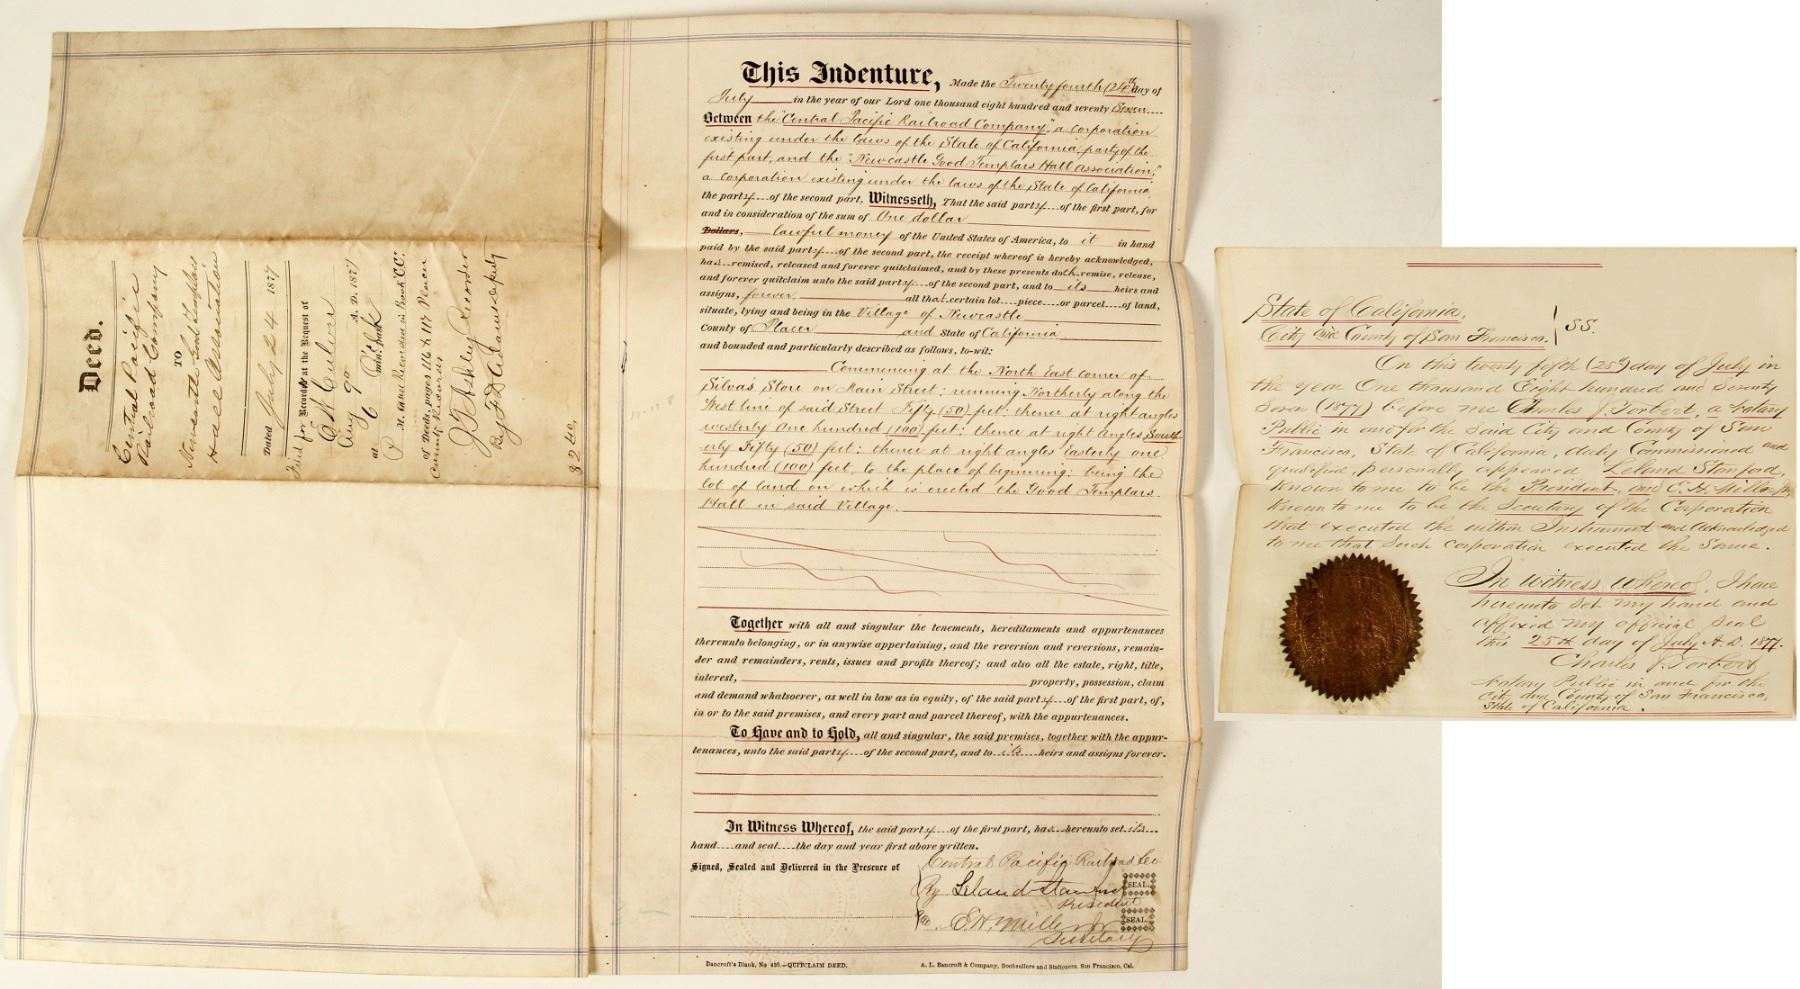 Deed.
Central Pacific
Railroad Company
TO
Newcastle Good Templars
Hall Association
Dated July 24 1877
Filed for Record at the Request of
Aug 9th A. D. 1877
at 6 min. past
P M. and Recorded in Book "CC"
of Deeds, pages 116 & 117 Placer
County Records
Recorder
By Deputy
This Indenture, Made the Twenty fourth (24th day of
July in the year of our Lord one thousand eight hundred and seventy Seven
Between the "Central Pacific Railroad Company," a corporation
existing under the laws of the State of California, party of the
first part, and the "Newcastle Good Templars Hall Association,"
a corporation existing under the laws of the State of California
the party of the second part, Witnesseth, That the said party of the first part, for
and in consideration of the sum of One dollar
Dollars, lawful money of the United States of America, to it in hand
paid by the said party of the second part, the receipt whereof is hereby acknowledged,
has remised, released and forever quitclaimed, and by these presents doth remise, release,
and forever quitclaim unto the said party of the second part, and to its heirs and
assigns, forever, all that certain lot piece or parcel of land,
situate, lying and being in the Village of Newcastle
County of Placer and State of California
and bounded and particularly described as follows, to-wit:
Commencing at the North East corner of
Silva's Store on Main Street; running Northerly along the
West line of said Street Fifty (50) feet; thence at right angles
westerly One hundred (100) feet; thence at right angles South-
erly Fifty (50) feet; thence at right angles easterly one
hundred (100) feet, to the place of beginning; being the
lot of land on which is erected the Good Templars
Hall in said Village.
Together with all and singular the tenements, hereditaments and appurtenances
thereunto belonging, or in anywise appertaining, and the reversion and reversions, remain-
der and remainders, rents, issues and profits thereof; and also all the estate, right, title,
interest, property, possession, claim
and demand whatsoever, as well in law as in equity, of the said party of the first part, of,
in or to the said premises, and every part and parcel thereof, with the appurtenances.
To Have and to Hold, all and singular, the said premises, together with the appur-
tenances, unto the said party of the second part, and to its heirs and assigns forever.
In Witness Whereof, the said party of the first part, has hereunto set its
hand and seal the day and year first above written.
Signed, Sealed and Delivered in the Presence of
Central Pacific Railroad Co
By Leland Stanford SEAL
President
E. H. Miller Jr SEAL
Secretary
Bancroft's Blank, No 430.—QUITCLAIM DEED. A. L. Bancroft & Company, Booksellers and Stationers, San Francisco, Cal.
State of California,
City and County of San Francisco. } SS.
On this twenty fifth (25th) day of July in
the year One thousand Eight hundred and Seventy
Seven (1877) before me Charles J. Torbert, a Notary
Public in and for the said City and County of San
Francisco, State of California, duly Commissioned and
qualified, personally appeared Leland Stanford,
known to me to be the President, and E. H. Miller Jr,
known to me to be the Secretary of the Corporation
that executed the within Instrument and Acknowledged
to me that such corporation executed the same.
In Witness Whereof, I have
hereunto set my hand and
affixed my official seal
this 25th day of July A.D. 1877.
Charles J. Torbert,
Notary Public in and for the
City and County of San Francisco,
State of California.